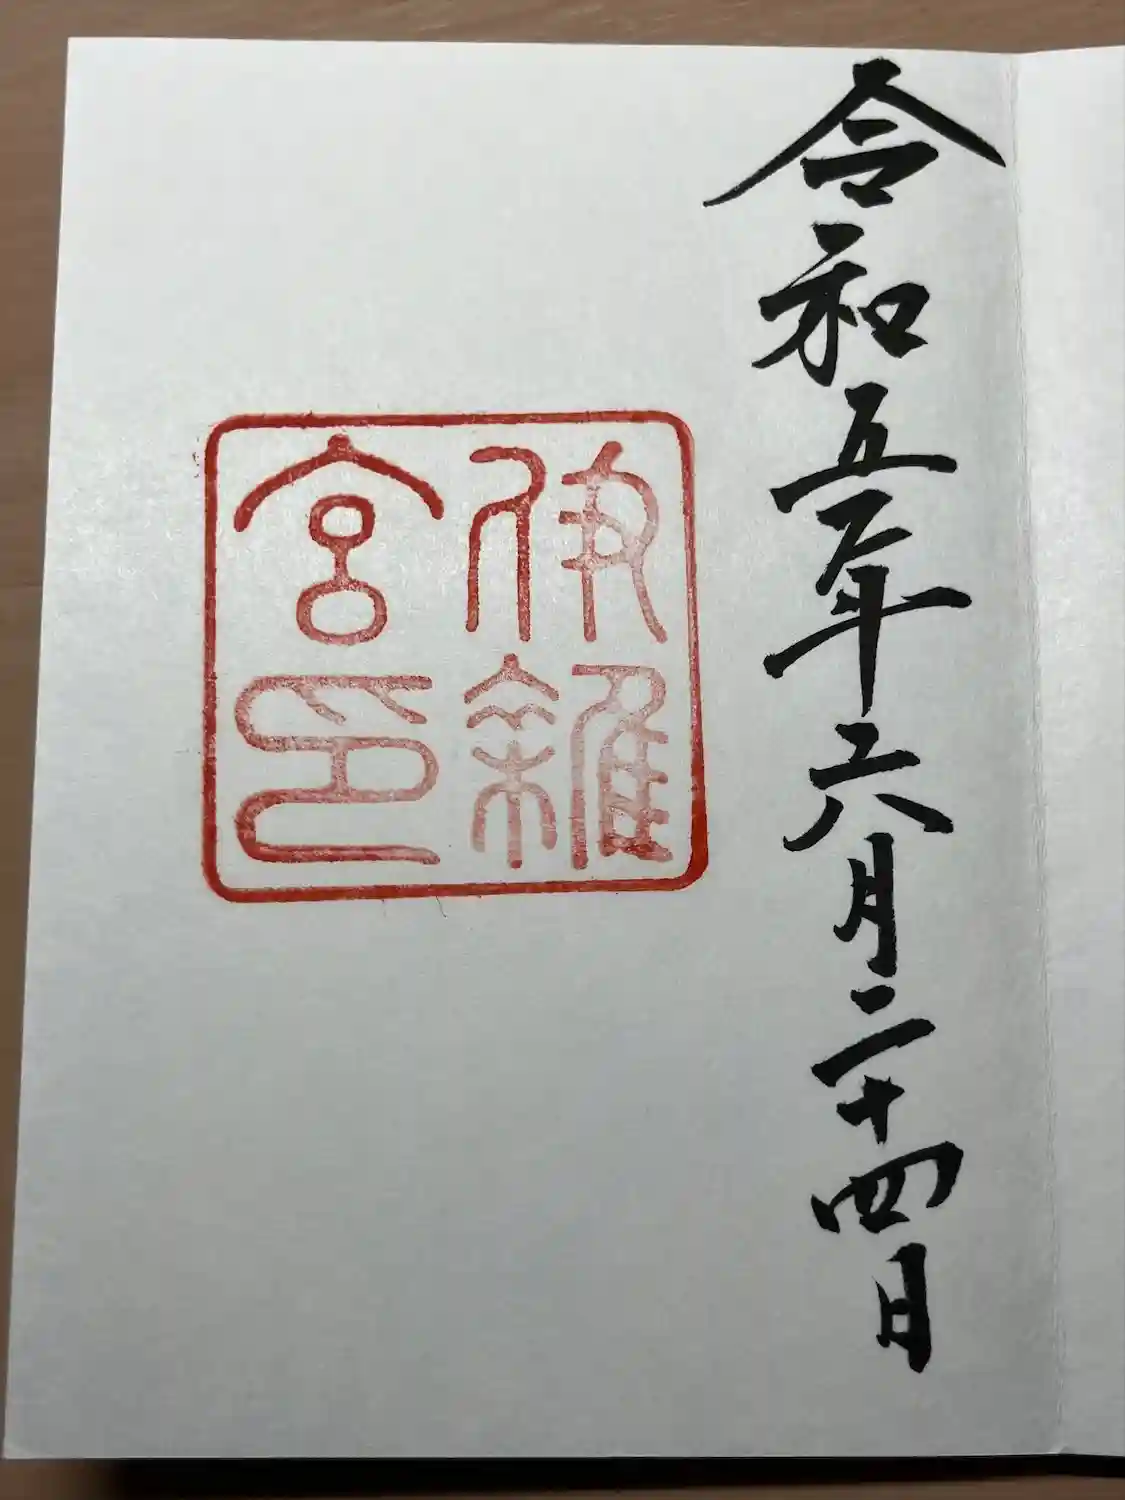 令和五年六月二十四日
伊雜
宮印